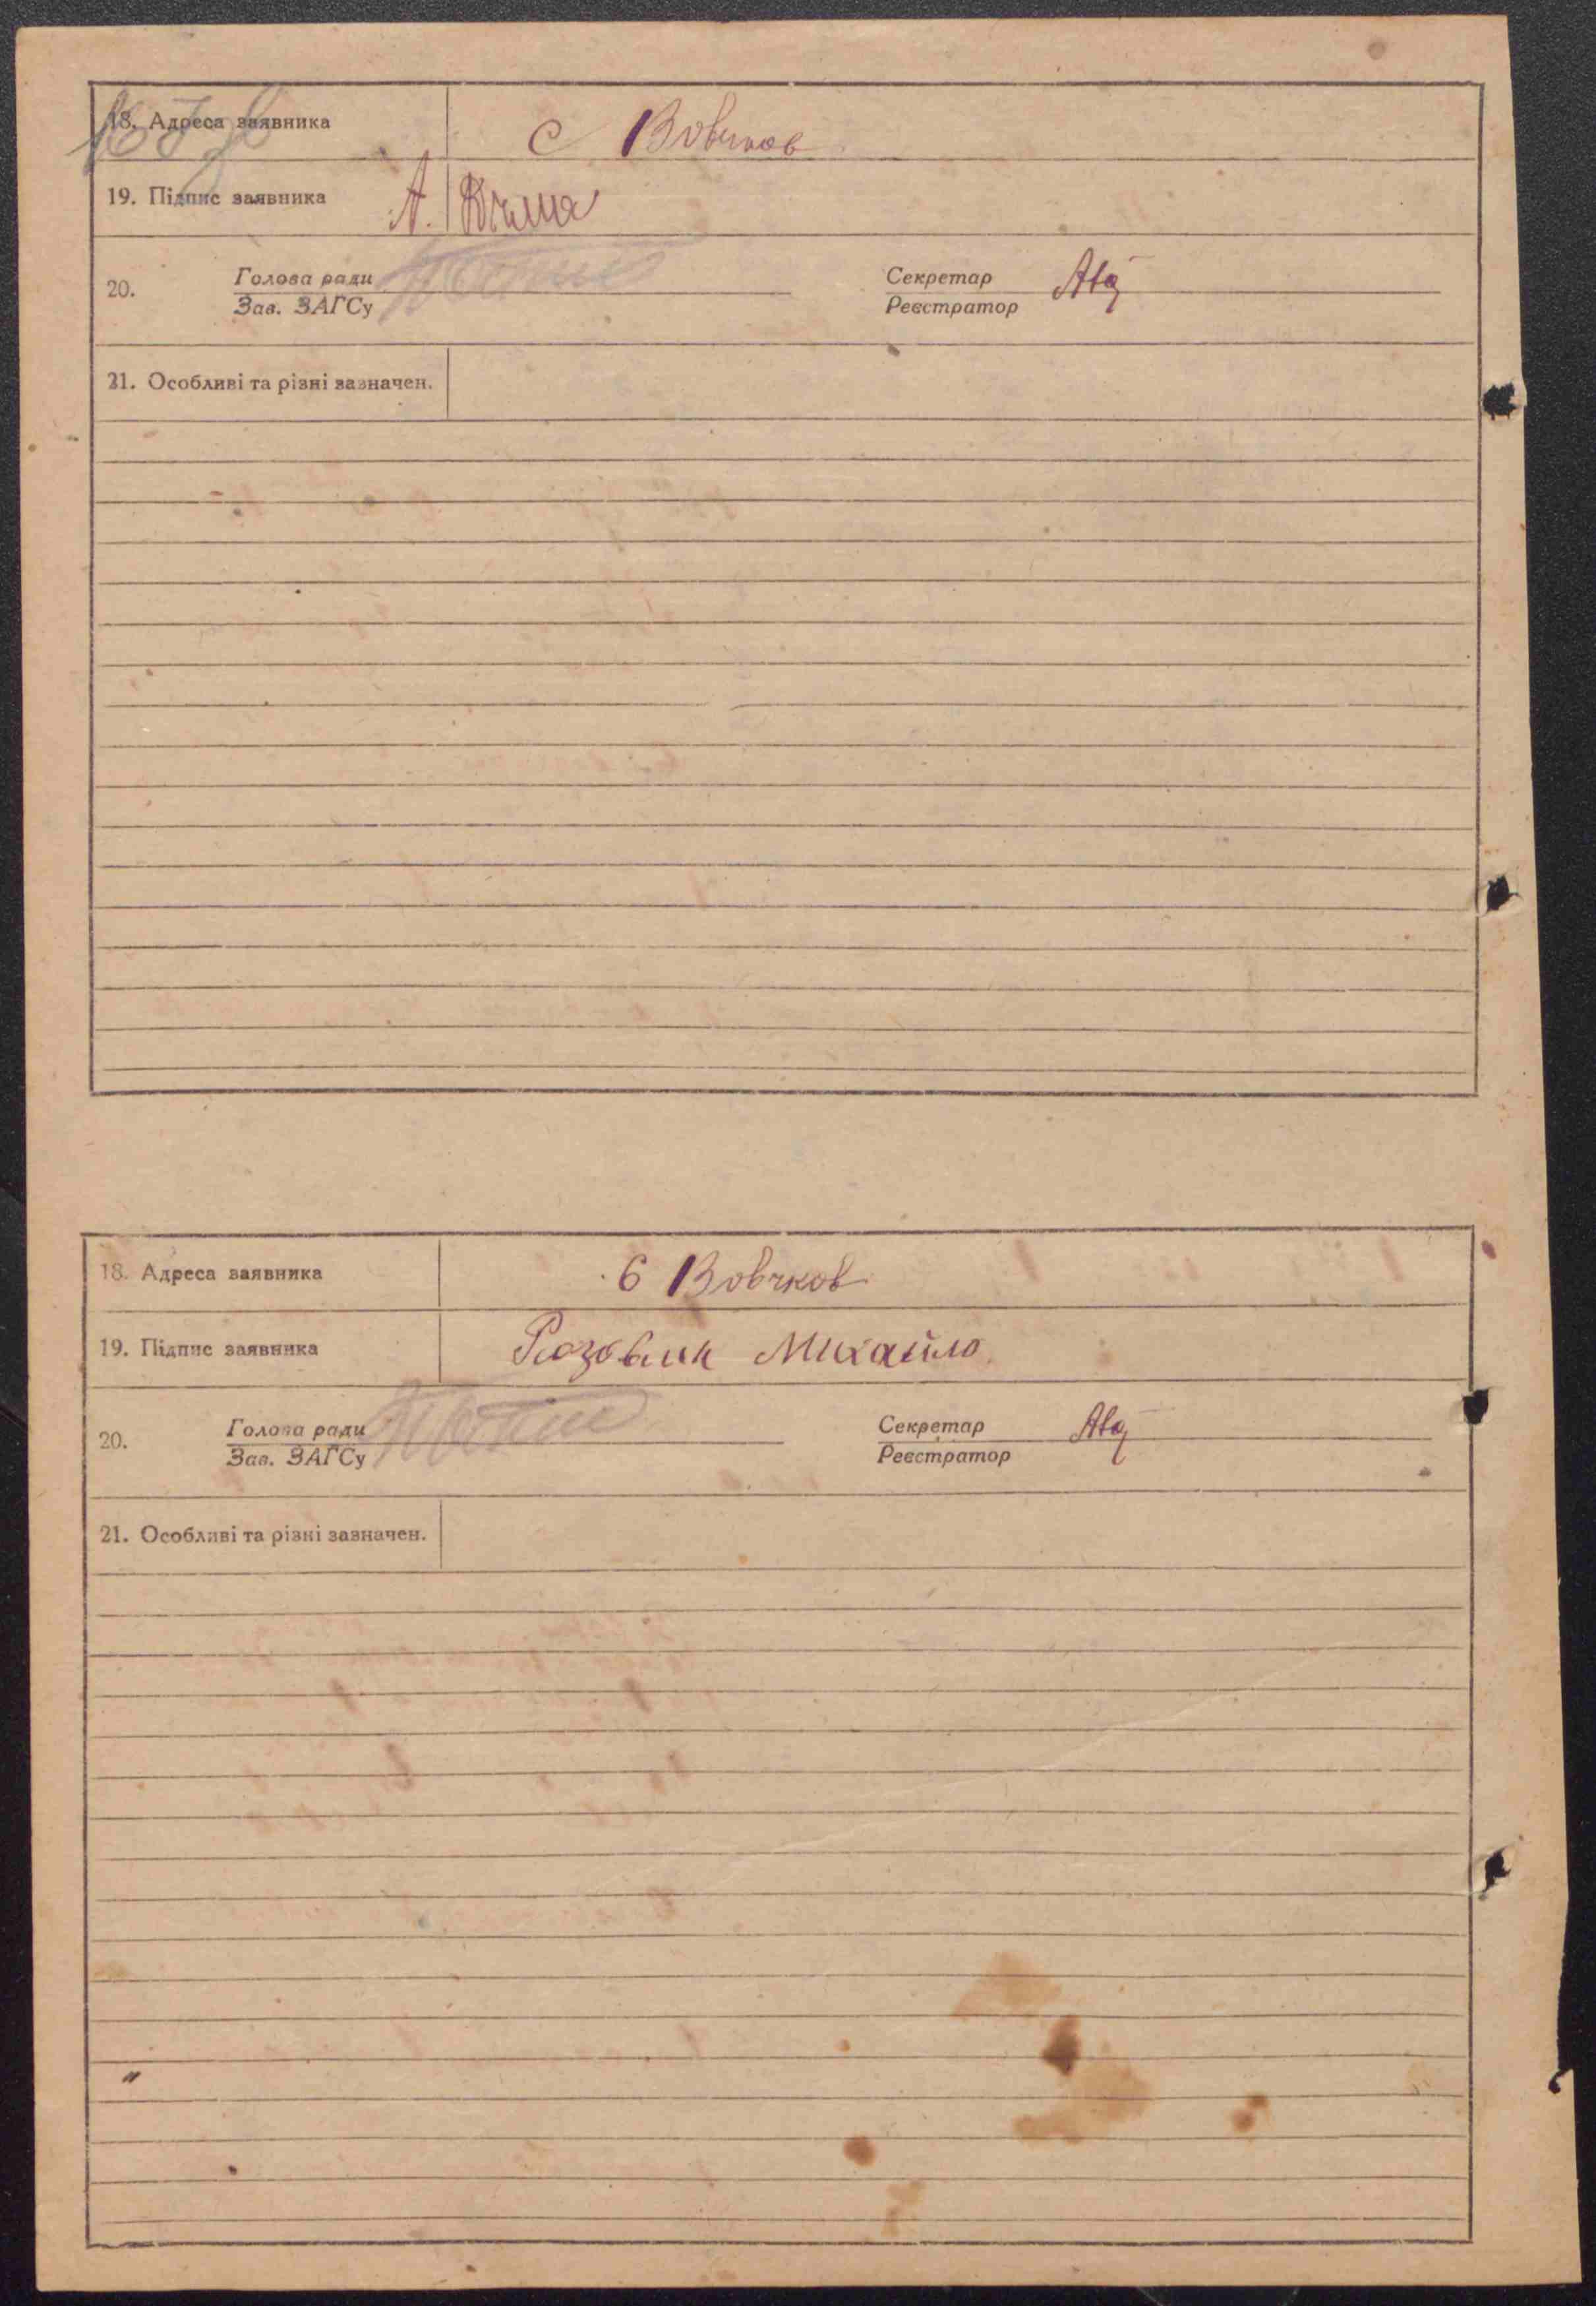 18. Адреса заявника С Вовчков
19. Підпис заявника А.
20. Голова ради Секретар
Зав. ЗАГСу Реєстратор
21. Особливі та різні зазначен.
18. Адреса заявника Вовчков
19. Підпис заявника Михайло
20. Голова ради Секретар
Зав. ЗАГСу Реєстратор
21. Особливі та різні зазначен.